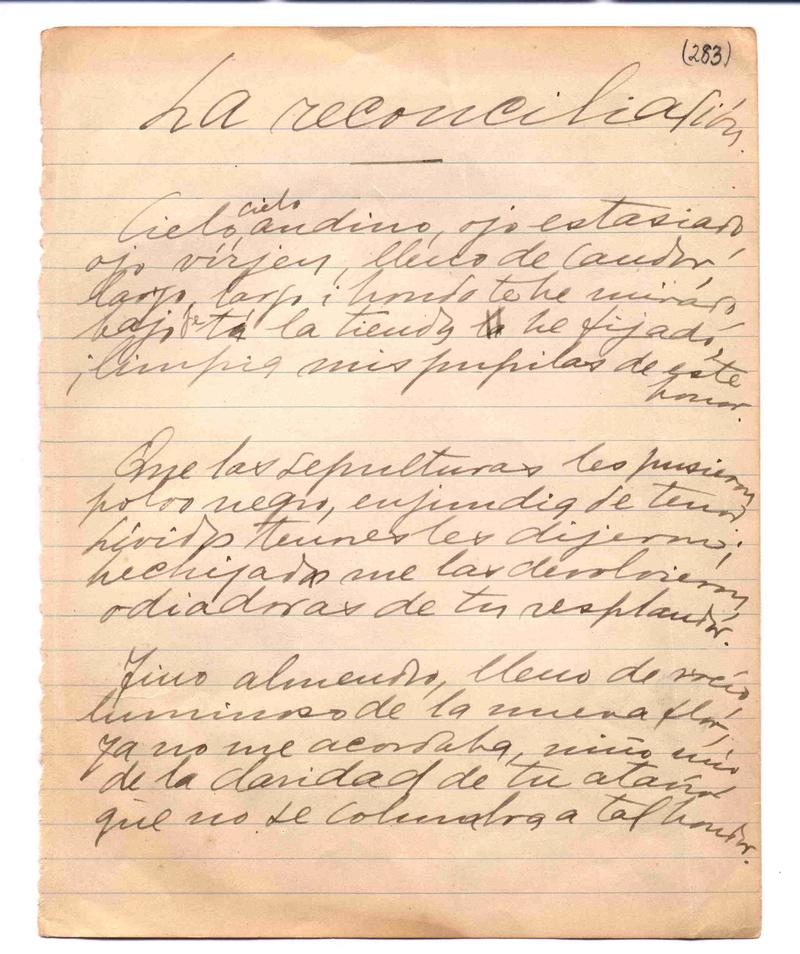 (283)
La reconciliación.
cielo
Cielo, andino, ojo estasiado,
ojo vírjen, lleno de candor,
largo, largo i hondo te he mirado
bajo de la tienda he fijado,
¡limpia mis pupilas de este
horror.
Que las sepulturas les pusieron
polvo negro, enjundia de
lívidas les dijeron;
hechizadas me las devolvieron,
odiadoras de tu resplandor.
Fino almendro, lleno de rocío
luminoso de la nueva flor,
ya no me acordaba, niño mío
de la claridad de tu
que no se columbra a tal hondor.